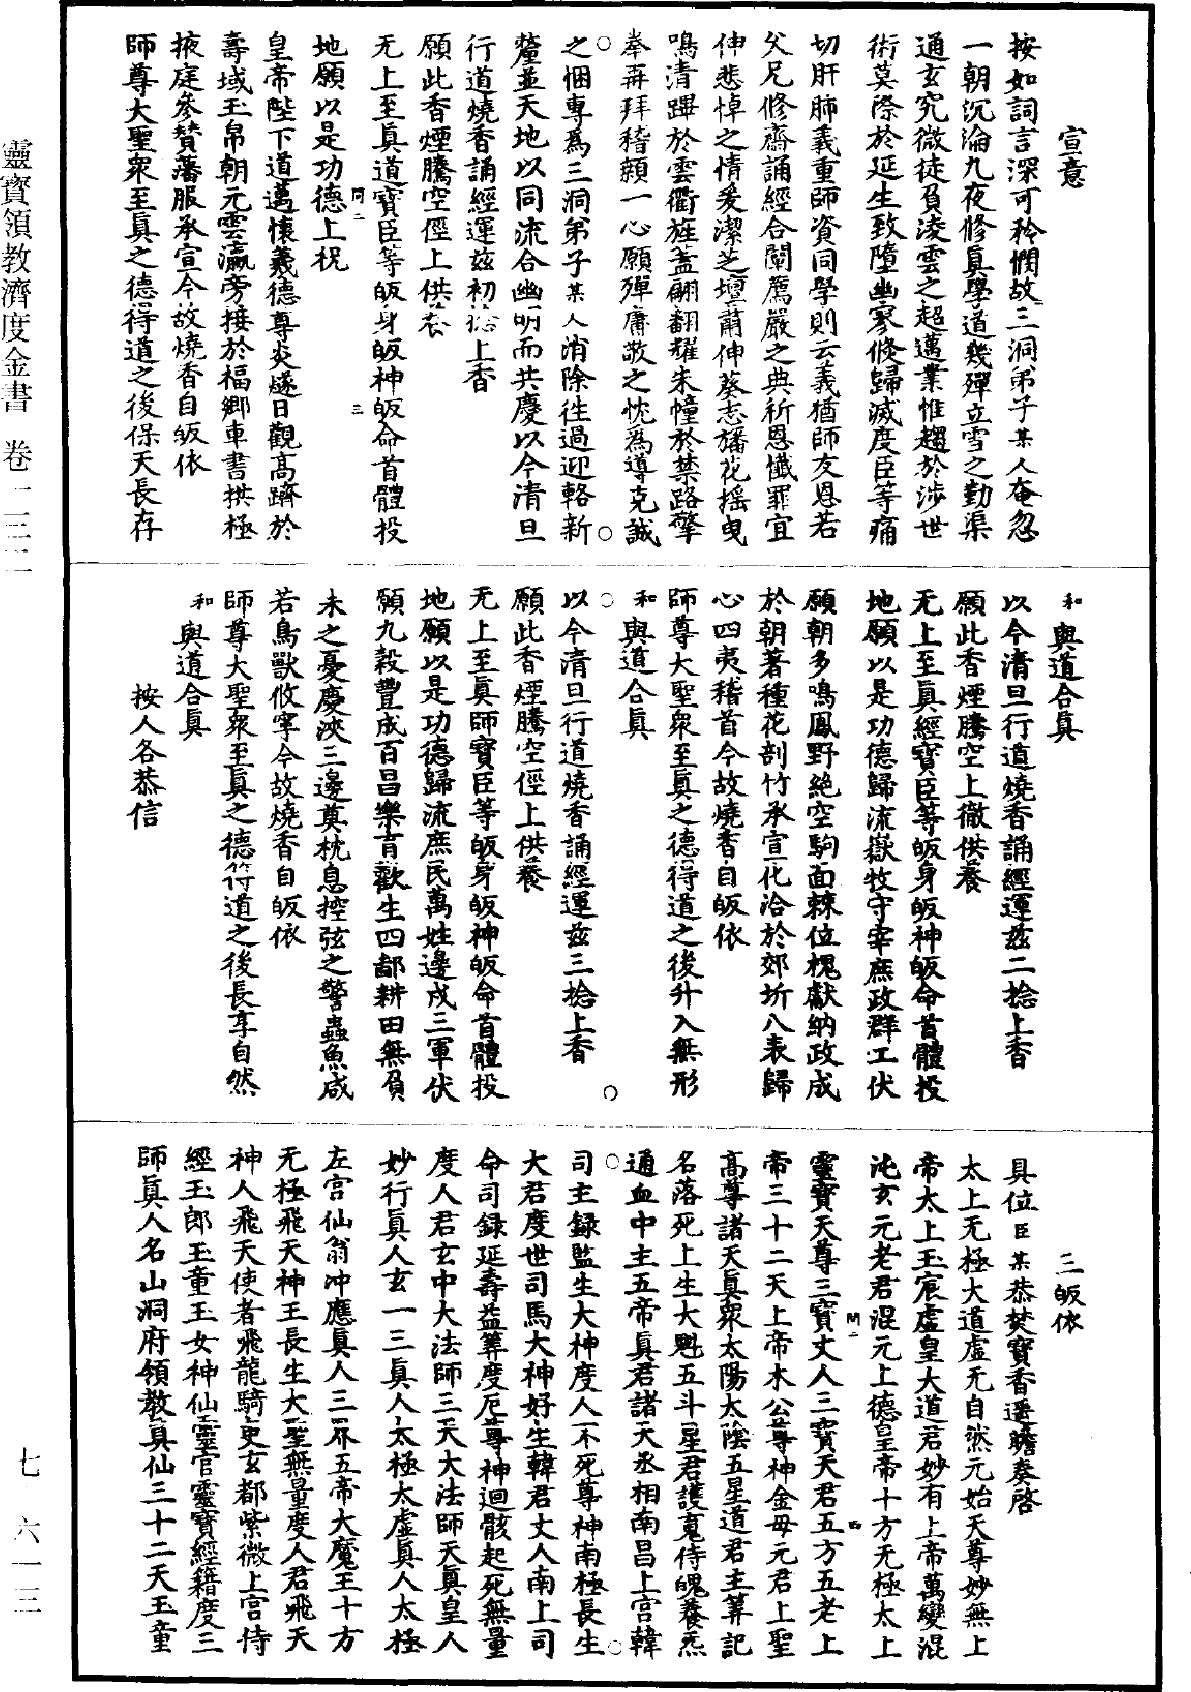 宣意
按如詞言深可矜憫故三洞弟子某人奄忽
一朝沉淪九夜修眞學道幾殫立雪之勤渠
通玄究微徒負淩雲之超邁業惟趨於涉世
術莫際於延生致墮幽寥倏歸滅度臣等痛
切肝肺義重師資同學則云義猶師友恩若
父兄修齋誦經合闡薦嚴之典祈恩懺罪宜
伸悲悼之情爰潔芝壇肅伸葵志旛花摇曳
鳴清蹕於雲衢旌盖翩翻耀朱幢於禁路擎
拳再拜稽顙一心願殫庸敬之忱爲導克誠
之悃專爲三洞弟子某人消除徃過迎輅新
釐並天地以同流合幽明而共慶以今清旦
行道燒香誦經運兹初捻上香
願此香煙騰空徑上供養
无上至眞道寶臣等皈身皈神皈命首體投
地願以是功德上祝
皇帝陛下道邁懷羲德尊炎燧日觀高躋於
壽域玉帛朝元雲瀛旁接於福鄉車書拱極
掖庭參贊藩服承宣今故燒香自皈依
師尊大聖衆至眞之德得道之後保天長存
和與道合眞
以今清旦行道燒香誦經運兹二捻上香
願此香煙騰空上徹供養
无上至眞經寶臣等皈身皈神皈命首體投
地願以是功德歸流嶽牧守宰庶政群工伏
願朝多鳴鳳野絶空駒面棘位槐獻納政成
於朝著種花剖竹承宣化洽於郊圻八表歸
心四夷稽首今故燒香自皈依
師尊大聖衆至眞之德得道之後升入無形
和與道合眞
以今清旦行道燒香誦經運兹三捻上香
願此香煙騰空徑上供養
无上至眞師寶臣等皈身皈神皈命首體投
地願以是功德歸流庶民萬姓邊戍三軍伏
願九穀豐成百昌樂育歡生四鄙耕田無負
耒之憂慶浹三邊奠枕息控弦之警蟲魚咸
若鳥獸攸寧今故燒香自皈依
師尊大聖衆至眞之德得道之後長享自然
和與道合眞
按人各恭信
三皈依
具位臣某恭焚寶香遥瞻奏啓
太上无極大道虚无自然元始天尊妙無上
帝太上玉宸虚皇大道君妙有上帝萬變混
沌玄元老君混元上德皇帝十方无極太上
靈寶天尊三寶丈人三寶天君五方五老上
帝三十二天上帝木公尊神金母元君上聖
高尊諸天眞衆太陽太陰五星道君主筭記
名落死上生大魁五斗星君護䰟侍魄養炁
通血中主五帝眞君諸天丞相南昌上宫韓
司主録監生大神度人不死尊神南極長生
大君度世司馬大神好生韓君丈人南上司
命司録延壽益筭度厄尊神迴骸起死無量
度人君玄中大法師三天大法師天眞皇人
妙行眞人玄一三眞人太極太虚眞人太極
左宫仙翁冲應眞人三界五帝大魔王十方
无極飛天神王長生大聖無量度人君飛天
神人飛天使者飛龍騎吏玄都紫微上宫侍
經玉郎玉童玉女神仙靈官靈寶經籍度三
師眞人名山洞府領教眞仙三十二天玉童
靈寶領教濟度金書 卷二三二
七 六一三